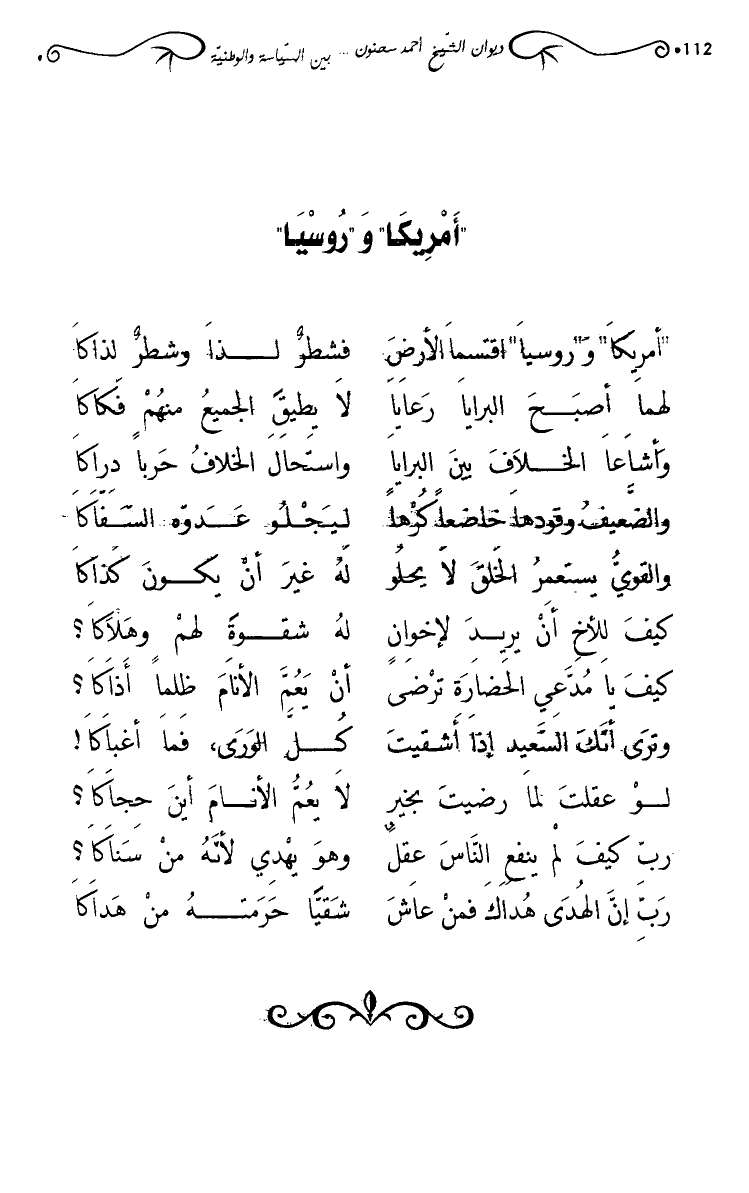 112 ديوان الشّيخ أحمد سحنون ... بين السّياسة والوطنيّة
"أَمْرِيكَا" وَ "رُوسْيَا"
"أمريكَا" وَ"روسيَا" اقتسمَا الأرضَ فشطرٌ لــذَا وشطرٌ لذاكَا
لهمَا أصبــحَ البرايَا رعَايَا لاَ يطيقُ الجميعُ منهُمْ فكَاكَا
وأشَاعَا الخــلاَفَ بينَ البرايَا واستحَالَ الخلافُ حَرباً دراكَا
والضّعيفُ وقودهَا خاضعاً كُرْهاً ليَجْلُــو عَــدوّه السّفّاكَا
والقويُّ يستعمرُ الخَلْقَ لاَ يحلُو لَهُ غيرَ أنْ يكــونَ كَذَاكَا
كيفَ للأخِ أنْ يريــدَ لإخوانٍ لهُ شقــوةً لهمْ وهَلاَكَا؟
كيفَ يَا مُدَّعي الحضارَة ترْضى أنْ يَعُمَّ الأنَامَ ظلماً أذَاكَا؟
وترَى أنّكَ السَّعيد إذَا أَشقيتَ كُــلَّ الوَرَى، فمَا أغبَاكَا!
لــوْ عقلتَ لمَا رضيتَ بخيرٍ لاَ يعُمُّ الأنــامَ أينَ حجاكَا؟
ربّ كيفَ لمْ ينفعِ النَّاسَ عقلٌ وهوَ يهْدي لأنَّهُ منْ سَنَاكَا؟
رَبِّ إنَّ الهُدَى هُدَاكَ فمنْ عاشَ شَقيًّا حَرَمتــهُ منْ هَدَاكَا